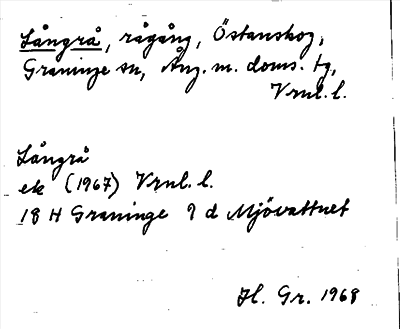 Långrå, rågång, Östanskog,
Graninge sn, Ång. m. doms. tg,
Vrnl. l.
Långrå
ek (1967) Vrnl. l.
18 H Graninge 9 d Mjövattnet
Hl. Gr. 1968